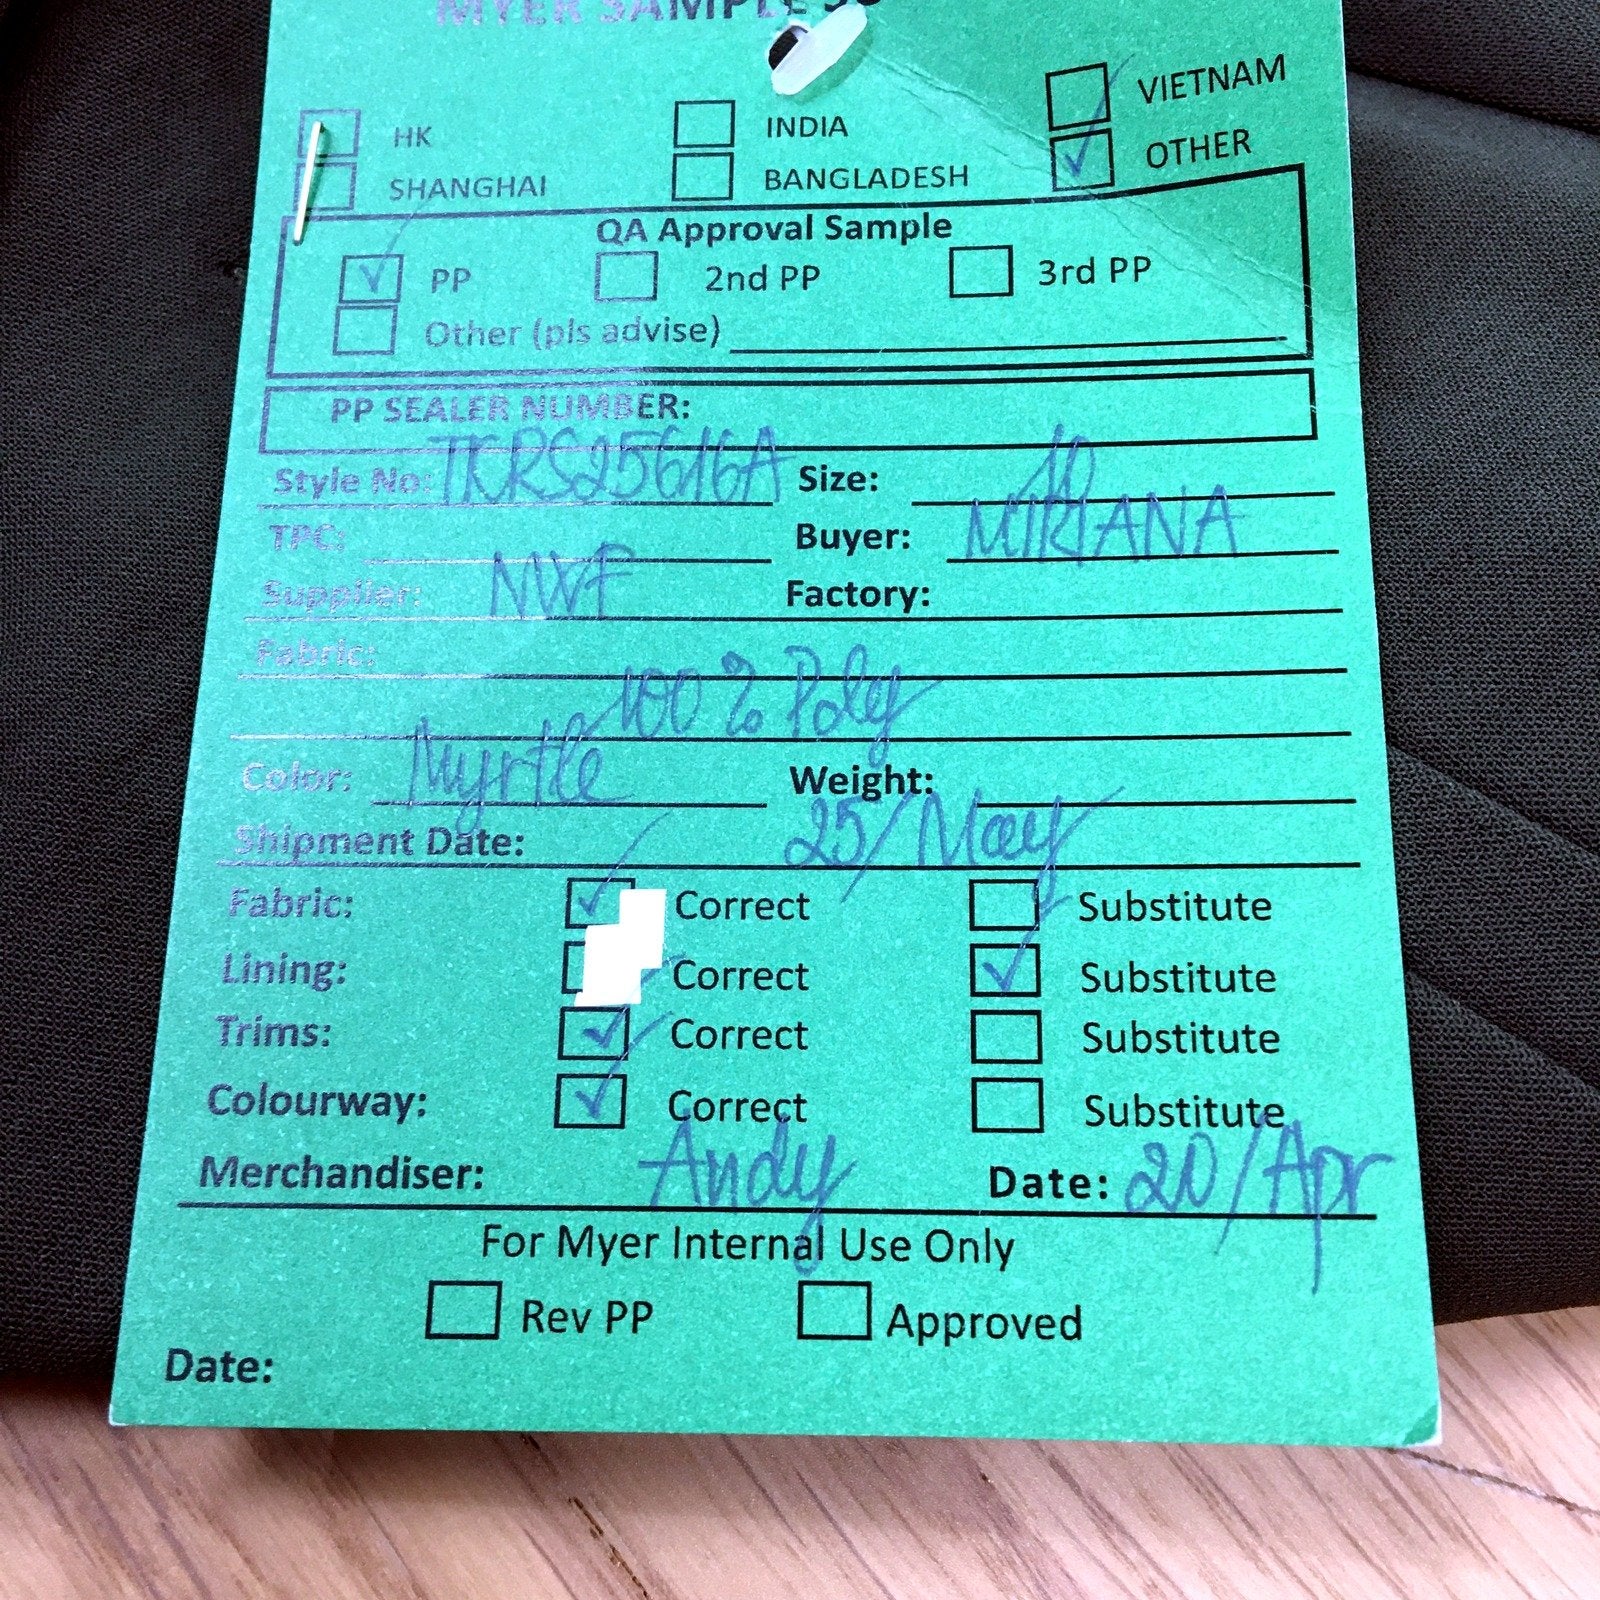 MYER SAMPLE
HK INDIA VIETNAM
SHANGHAI BANGLADESH OTHER
QA Approval Sample
PP 2nd PP 3rd PP
Other (pls advise)
PP SEALER NUMBER:
Style No: TKRS25616A Size: 10
TPC: Buyer: MIRJANA
Supplier: NWF Factory:
Fabric:
100% Poly
Color: Myrtle Weight:
Shipment Date: 25/May
Fabric: Correct Substitute
Lining: Correct Substitute
Trims: Correct Substitute
Colourway: Correct Substitute
Merchandiser: Andy Date: 20/Apr
For Myer Internal Use Only
Rev PP Approved
Date: